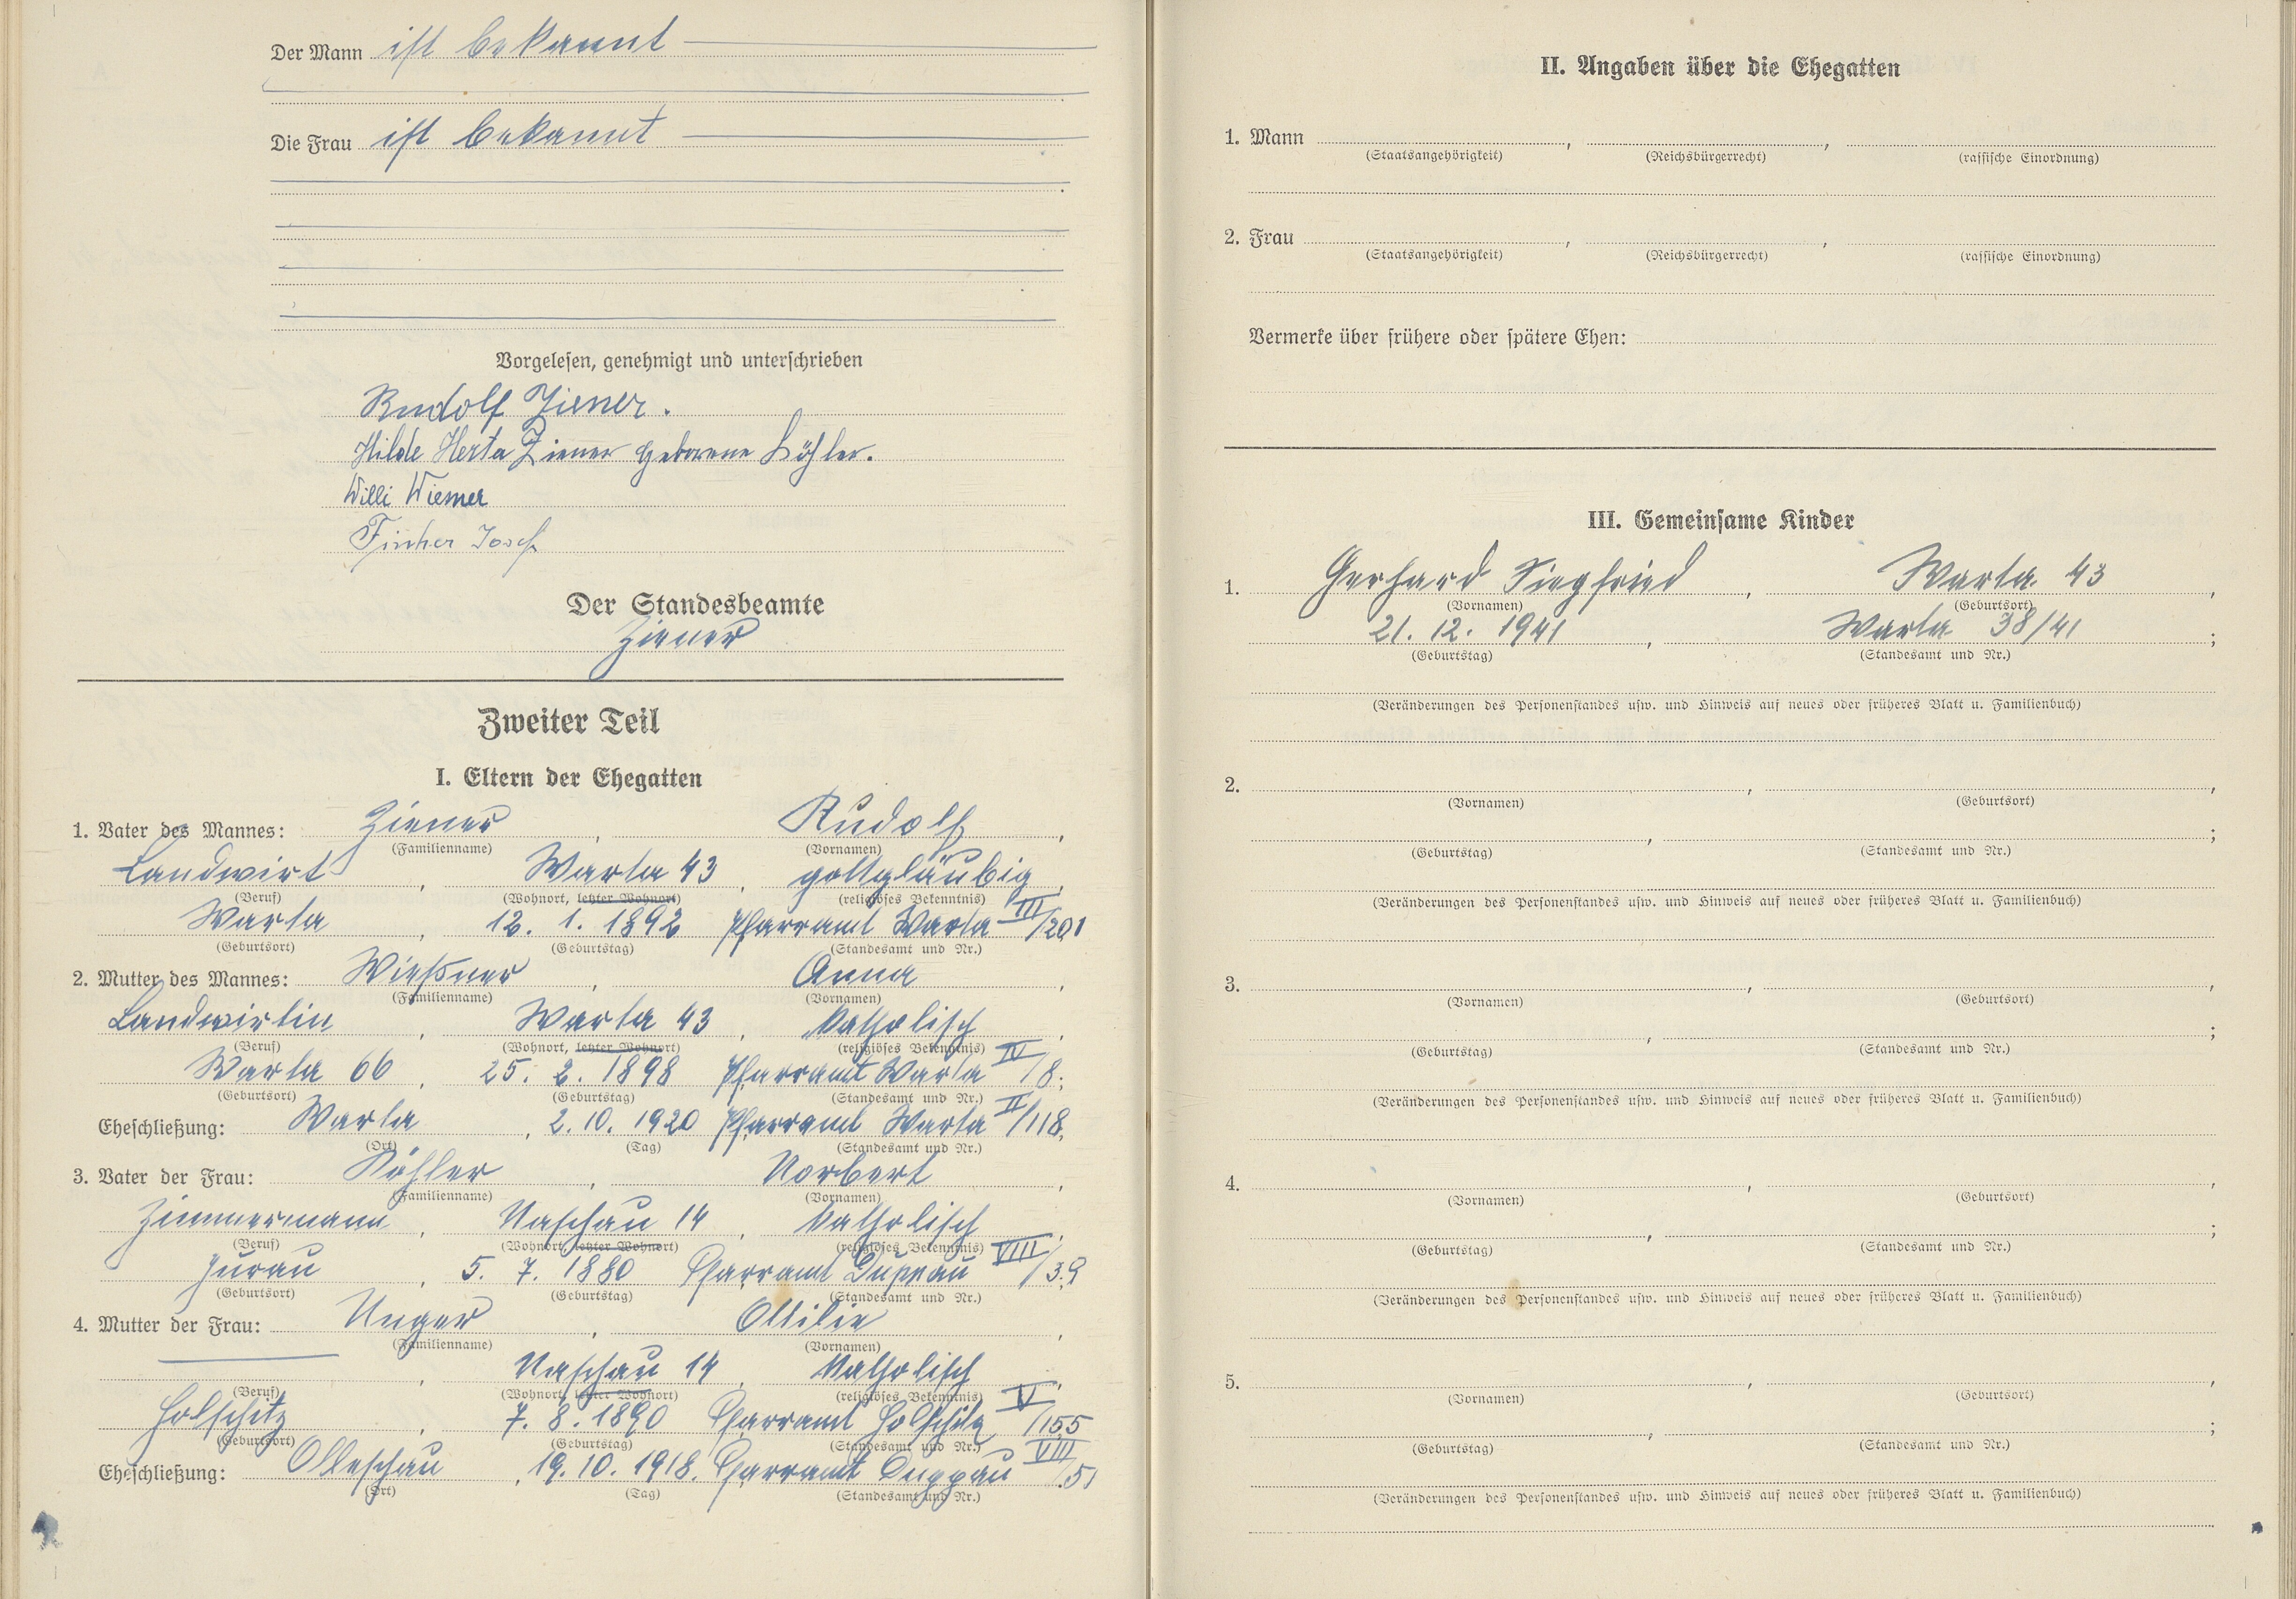 Der Mann ist bekannt
Die Frau ist bekannt
Vorgelesen, genehmigt und unterschrieben
Rudolf Ziener.
Hilde Herta Ziener geborene Köhler.
Willi Wiesner
Josef
Der Standesbeamte
Ziener
Zweiter Teil
I. Eltern der Ehegatten
1. Vater des Mannes: Ziener, Rudolf,
(Familienname) (Vornamen)
Landwirt, Warta 43, gottgläubig,
(Beruf) (Wohnort, letzter Wohnort) (religiöses Bekenntnis)
Warta, 12. 1. 1892 Pfarramt Warta III/201
(Geburtsort) (Geburtstag) (Standesamt und Nr.)
2. Mutter des Mannes: Wießner, Anna,
(Familienname) (Vornamen)
Landwirtin, Warta 43, katholisch,
(Beruf) (Wohnort, letzter Wohnort) (religiöses Bekenntnis)
Warta 66, 25. 2. 1898 Pfarramt Warta IV/8;
(Geburtsort) (Geburtstag) (Standesamt und Nr.)
Eheschließung: Warta, 2. 10. 1920 Pfarramt Warta II/118.
(Ort) (Tag) (Standesamt und Nr.)
3. Vater der Frau: Köhler, Norbert,
(Familienname) (Vornamen)
Zimmermann, Saschau 14, katholisch,
(Beruf) (Wohnort, letzter Wohnort) (religiöses Bekenntnis)
Jurau, 5. 7. 1880 Pfarramt Duppau VIII/39
(Geburtsort) (Geburtstag) (Standesamt und Nr.)
4. Mutter der Frau: Unger, Ottilie,
(Familienname) (Vornamen)
, 14, katholisch,
(Beruf) (Wohnort, letzter Wohnort) (religiöses Bekenntnis)
, 7. 8. 1890 Pfarramt V/155
(Geburtsort) (Geburtstag) (Standesamt und Nr.)
Eheschließung: Olleschau, 19. 10. 1918. Pfarramt Duppau VIII/51
(Ort) (Tag) (Standesamt und Nr.)
II. Angaben über die Ehegatten
1. Mann , ,
(Staatsangehörigkeit) (Reichsbürgerrecht) (rassische Einordnung)
2. Frau , ,
(Staatsangehörigkeit) (Reichsbürgerrecht) (rassische Einordnung)
Vermerke über frühere oder spätere Ehen:
III. Gemeinsame Kinder
1. Gerhard Siegfried, Warta 43,
(Vornamen) (Geburtsort)
21. 12. 1941, Warta 38/41;
(Geburtstag) (Standesamt und Nr.)
(Veränderungen des Personenstandes usw. und Hinweis auf neues oder früheres Blatt u. Familienbuch)
2. , ,
(Vornamen) (Geburtsort)
, ;
(Geburtstag) (Standesamt und Nr.)
(Veränderungen des Personenstandes usw. und Hinweis auf neues oder früheres Blatt u. Familienbuch)
3. , ,
(Vornamen) (Geburtsort)
, ;
(Geburtstag) (Standesamt und Nr.)
(Veränderungen des Personenstandes usw. und Hinweis auf neues oder früheres Blatt u. Familienbuch)
4. , ,
(Vornamen) (Geburtsort)
, ;
(Geburtstag) (Standesamt und Nr.)
(Veränderungen des Personenstandes usw. und Hinweis auf neues oder früheres Blatt u. Familienbuch)
5. , ,
(Vornamen) (Geburtsort)
, ;
(Geburtstag) (Standesamt und Nr.)
(Veränderungen des Personenstandes usw. und Hinweis auf neues oder früheres Blatt u. Familienbuch)